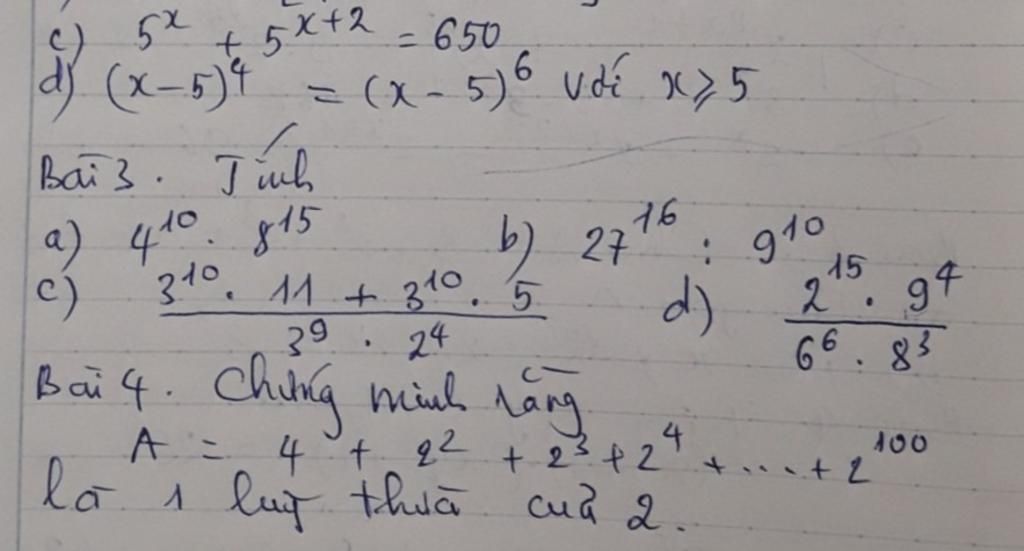 c) 5^x + 5^{x+2} = 650
d) (x-5)^4 = (x-5)^6 với x ⩾ 5
Bài 3. Tính
a) 4^{10} . 8^{15} b) 27^{16} : 9^{10}
c) \frac{3^{10} . 11 + 3^{10} . 5}{3^9 . 2^4} d) \frac{2^{15} . 9^4}{6^6 . 8^3}
Bài 4. Chứng minh rằng
A = 4 + 2^2 + 2^3 + 2^4 + ... + 2^{100}
là 1 luỹ thừa của 2.